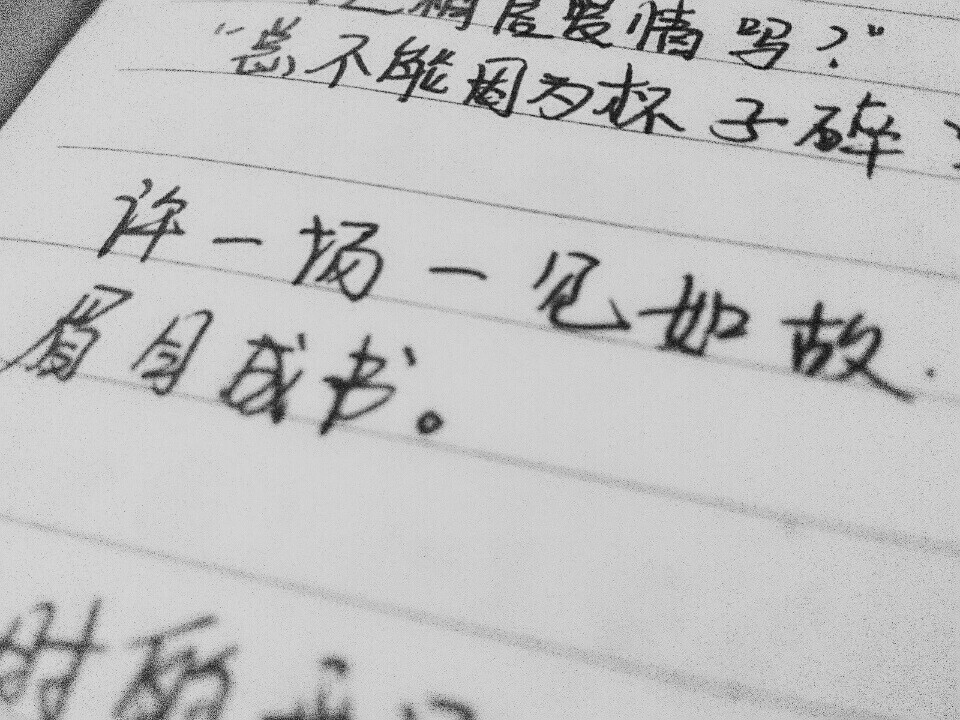 相信爱情吗？"
"总不能因为杯子碎
许一场一见如故.
眉目成书。
时